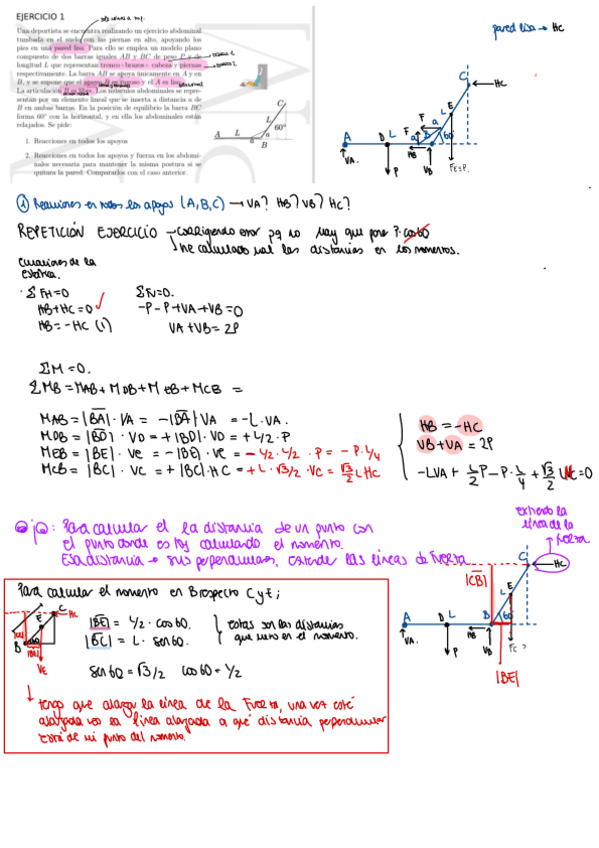 EJERCICIO 1
Una deportista se encuentra realizando un ejercicio abdominal
tumbada en el suelo con las piernas en alto, apoyando los
pies en una pared lisa. Para ello se emplea un modelo plano
compuesto de dos barras iguales AB y BC de peso P y de
longitud L que representan tronco+brazos+cabeza y piernas
respectivamente. La barra AB se apoya únicamente en A y en
B, y se supone que el apoyo B es rugoso y el A es liso.
La articulación B es libre. Los músculos abdominales se repre-
sentan por un elemento lineal que se inserta a distancia a de
B en ambas barras. En la posición de equilibrio la barra BC
forma 60° con la horizontal, y en ella los abdominales están
relajados. Se pide:
1. Reacciones en todos los apoyos
2. Reacciones en todos los apoyos y fuerza en los abdomi-
nales necesaria para mantener la misma postura si se
quitara la pared. Compararlos con el caso anterior.
A L a B a L 60° C
pared lisa → HC
C HC
E L F a a 60
A D L B
VA P HB VB FE=P
① Reacciones en todos los apoyos (A,B,C) → VA? HB? VB? HC?
REPETICIÓN EJERCICIO → corrigiendo error pq no hay que poner P·cos60
he calculado mal las distancias en los momentos.
Ecuaciones de la
estática.
· ΣFH=0
HB+HC=0 ✓
HB=-HC (1)
ΣFV=0.
-P-P+VA+VB=0
VA+VB=2P
ΣM=0.
ΣMB=MAB+MDB+MEB+MCB =
MAB=|BA|·VA = -|BA|VA = -L·VA.
MDB=|BD|·VD=+|BD|·VD=+L/2·P
MEB=|BE|·VE=-|BE|·VE=-L/2·1/2·P=-P·L/4
MCB=|BC|·VC=+|BC|·HC=+L·√3/2·VC=√3/2 L HC
HB=-HC
VB+VA=2P
-LVA+L/2P-P·L/4+√3/2 L HC=0
jo: Para calcular el la distancia de un punto con
el punto donde estoy calculando el momento.
Esa distancia → sus perpendiculares, extender las líneas de fuerza
extiendo la
línea de la
fuerza
C HC
|CB| E L 60
A D L B
VA P HB VB FE?
|BE|
Para calcular el momento en B respecto C y E;
C HC E B VE
|BE| = L/2·cos60.
|BC| = L·sen60.
estas son las distancias
que uso en el momento.
sen60=√3/2 cos60=1/2
tengo que alargar la línea de la Fuerza, una vez esté
alargada veo esa línea alargada a qué distancia perpendicular
está de mi punto del momento.